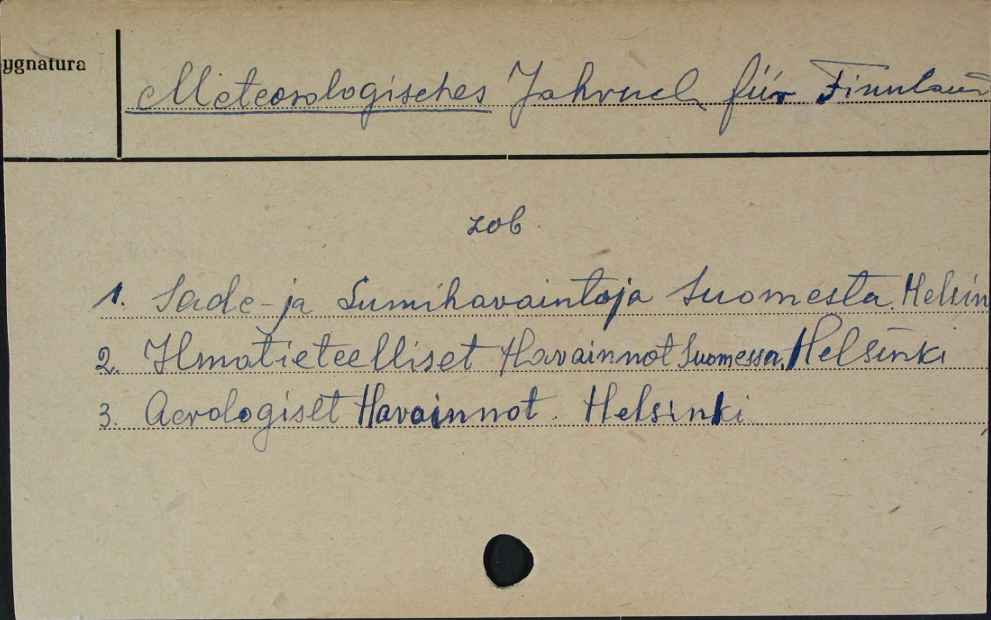 ygnatura
Meteorologisches Jahruch für Finnland
zob
1. Sade-ja Lumihavaintoja Suomesta. Helsin
2. Ilmatieteelliset Havainnot Suomessa. Helsinki
3. Aerologiset Havainnot. Helsinki